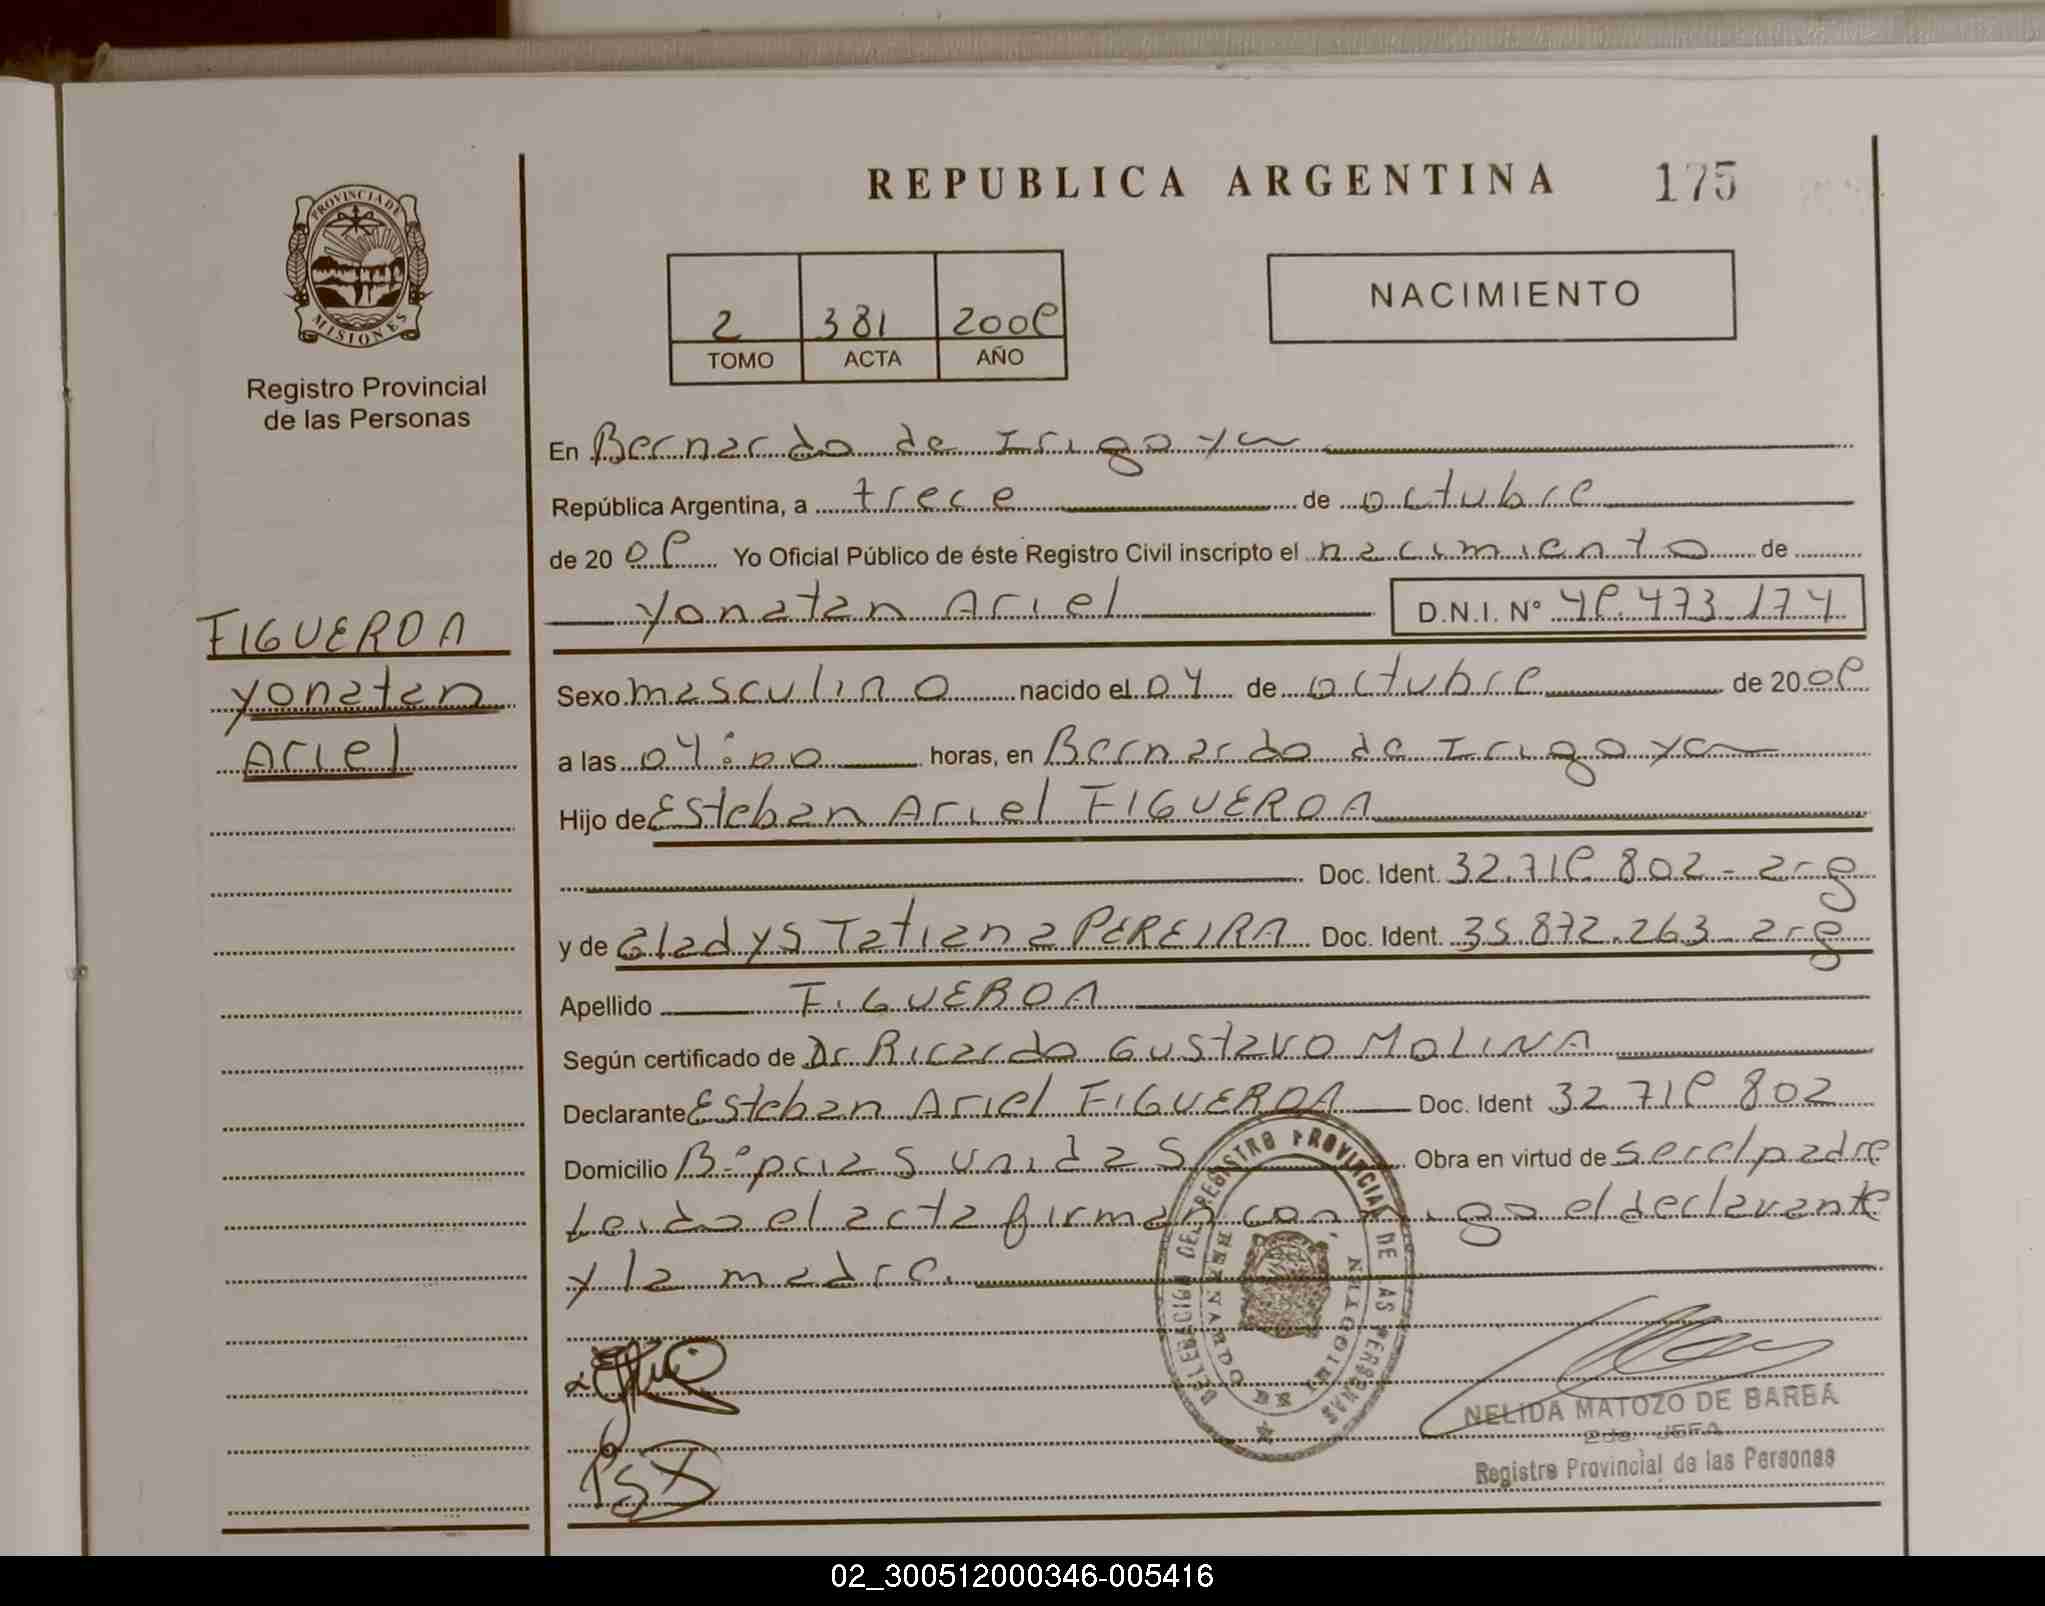 REPUBLICA ARGENTINA 175
PROVINCIA DE
MISIONES
Registro Provincial
de las Personas
2 381 2009
TOMO ACTA AÑO
NACIMIENTO
En Bernardo de Irigoyen
República Argentina, a trece de octubre
de 2009 Yo Oficial Público de éste Registro Civil inscripto el nacimiento de
Yonatan Ariel D.N.I. N° 49.473.174
FIGUEROA
Yonatan
Ariel
Sexo masculino nacido el 04 de octubre de 2009
a las 04:00 horas, en Bernardo de Irigoyen
Hijo de Esteban Ariel FIGUEROA
Doc. Ident. 32.719.802 - arg
y de Gladys Tatiana PEREIRA Doc. Ident. 35.872.263 - arg
Apellido FIGUEROA
Según certificado de Dr Ricardo Gustavo MOLINA
Declarante Esteban Ariel FIGUEROA Doc. Ident 32.719.802
Domicilio B° pcias Unidas Obra en virtud de ser el padre
Leida el acta firman conmigo el declarante
y la madre.
DELEGACION DEL REGISTRO PROVINCIAL DE LAS PERSONAS
BERNARDO DE IRIGOYEN
NELIDA MATOZO DE BARBÁ
2da. JEFA
Registro Provincial de las Personas
02_300512000346-005416